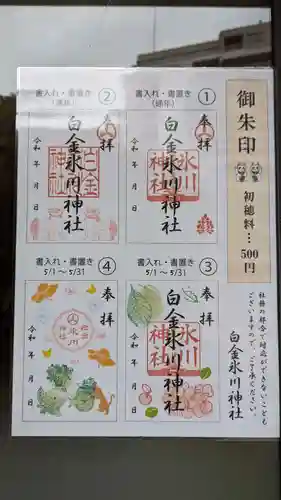 御朱印
初穂料…500円
社務の都合で対応ができないことも
ございますので、ご了承ください。
白金氷川神社
書入れ・書置き
(通年)
①
奉拝
氷川神社
白金氷川神社
令和 年 月 日
書入れ・書置き
(通年)
②
奉拝
白金氷川神社
白金氷川神社
令和 年 月 日
書入れ・書置き
5/1～5/31
③
奉拝
氷川神社
白金氷川神社
令和 年 月 日
書入れ・書置き
5/1～5/31
④
奉拝
令和 年 月 日